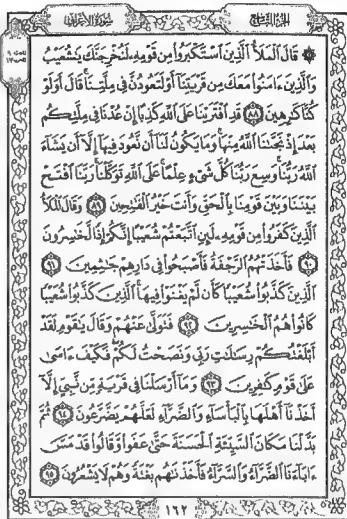 الجزء التاسع
سورة الأعراف
قَالَ ٱلْمَلَأُ ٱلَّذِينَ ٱسْتَكْبَرُوا۟ مِن قَوْمِهِۦ لَنُخْرِجَنَّكَ يَٰشُعَيْبُ
وَٱلَّذِينَ ءَامَنُوا۟ مَعَكَ مِن قَرْيَتِنَآ أَوْ لَتَعُودُنَّ فِى مِلَّتِنَا ۚ قَالَ أَوَلَوْ
كُنَّا كَٰرِهِينَ ٨٨ قَدِ ٱفْتَرَيْنَا عَلَى ٱللَّهِ كَذِبًا إِنْ عُدْنَا فِى مِلَّتِكُم
بَعْدَ إِذْ نَجَّىٰنَا ٱللَّهُ مِنْهَا ۚ وَمَا يَكُونُ لَنَآ أَن نَّعُودَ فِيهَآ إِلَّآ أَن يَشَآءَ
ٱللَّهُ رَبُّنَا ۚ وَسِعَ رَبُّنَا كُلَّ شَىْءٍ عِلْمًا ۚ عَلَى ٱللَّهِ تَوَكَّلْنَا ۚ رَبَّنَا ٱفْتَحْ
بَيْنَنَا وَبَيْنَ قَوْمِنَا بِٱلْحَقِّ وَأَنتَ خَيْرُ ٱلْفَٰتِحِينَ ٨٩ وَقَالَ ٱلْمَلَأُ
ٱلَّذِينَ كَفَرُوا۟ مِن قَوْمِهِۦ لَئِنِ ٱتَّبَعْتُمْ شُعَيْبًا إِنَّكُمْ إِذًا لَّخَٰسِرُونَ
٩٠ فَأَخَذَتْهُمُ ٱلرَّجْفَةُ فَأَصْبَحُوا۟ فِى دَارِهِمْ جَٰثِمِينَ ٩١
ٱلَّذِينَ كَذَّبُوا۟ شُعَيْبًا كَأَن لَّمْ يَغْنَوْا۟ فِيهَا ۚ ٱلَّذِينَ كَذَّبُوا۟ شُعَيْبًا
كَانُوا۟ هُمُ ٱلْخَٰسِرِينَ ٩٢ فَتَوَلَّىٰ عَنْهُمْ وَقَالَ يَٰقَوْمِ لَقَدْ
أَبْلَغْتُكُمْ رِسَٰلَٰتِ رَبِّى وَنَصَحْتُ لَكُمْ ۖ فَكَيْفَ ءَاسَىٰ
عَلَىٰ قَوْمٍ كَٰفِرِينَ ٩٣ وَمَآ أَرْسَلْنَا فِى قَرْيَةٍ مِّن نَّبِىٍّ إِلَّآ
أَخَذْنَآ أَهْلَهَا بِٱلْبَأْسَآءِ وَٱلضَّرَّآءِ لَعَلَّهُمْ يَضَّرَّعُونَ ٩٤ ثُمَّ
بَدَّلْنَا مَكَانَ ٱلسَّيِّئَةِ ٱلْحَسَنَةَ حَتَّىٰ عَفَوا۟ وَّقَالُوا۟ قَدْ مَسَّ
ءَابَآءَنَا ٱلضَّرَّآءُ وَٱلسَّرَّآءُ فَأَخَذْنَٰهُم بَغْتَةً وَهُمْ لَا يَشْعُرُونَ ٩٥
١٦٢